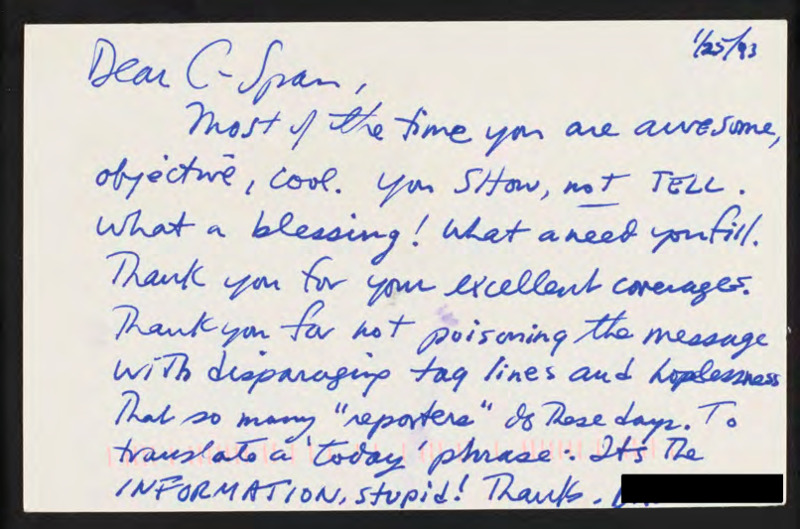 1/25/93
Dear C-Span,
Most of the time you are awesome,
objective, cool. You SHOW, not TELL.
What a blessing! What a need you fill.
Thank you for your excellent coverages.
Thank you for not poisoning the message
with disparaging tag lines and hoplessness
that so many "reporters" do these days. To
translate a 'today' phrase. It's the
INFORMATION, stupid! Thanks.